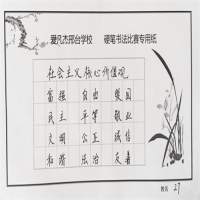 曼凡杰邢台学校 硬笔书法比赛专用纸
社会主义核心价值观
富强 自由 爱国
民主 平等 敬业
文明 公正 诚信
和谐 法治 友善
姓名 27